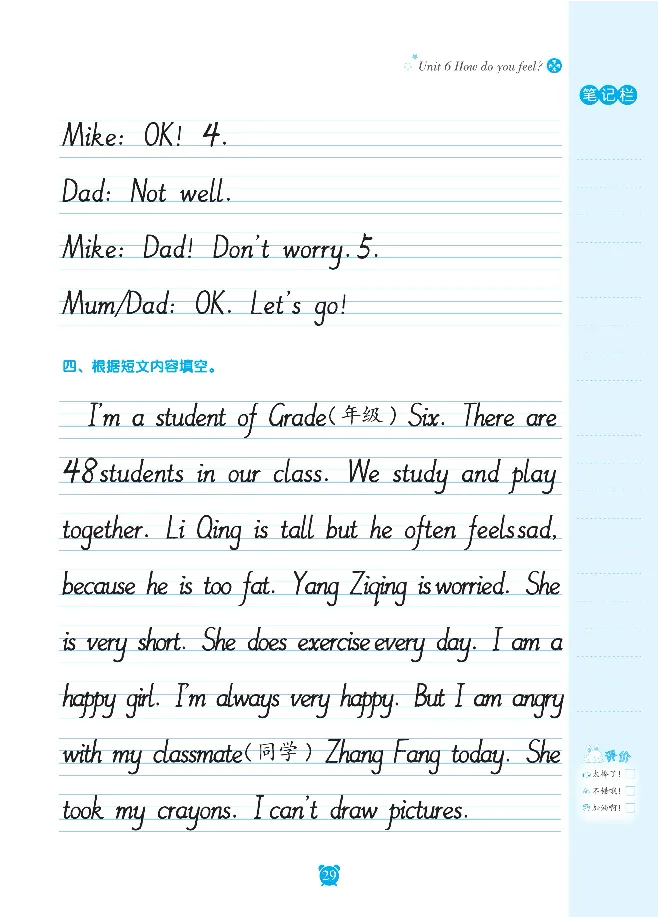 Unit 6 How do you feel?
笔记栏
Mike: OK! 4.
Dad: Not well.
Mike: Dad! Don't worry. 5.
Mum/Dad: OK. Let's go!
四、根据短文内容填空。
I'm a student of Grade(年级) Six. There are
48 students in our class. We study and play
together. Li Qing is tall but he often feels sad,
because he is too fat. Yang Ziqing is worried. She
is very short. She does exercise every day. I am a
happy girl. I'm always very happy. But I am angry
with my classmate(同学) Zhang Fang today. She
took my crayons. I can't draw pictures.
评价
太棒了!
不错哦!
加油啊!
29